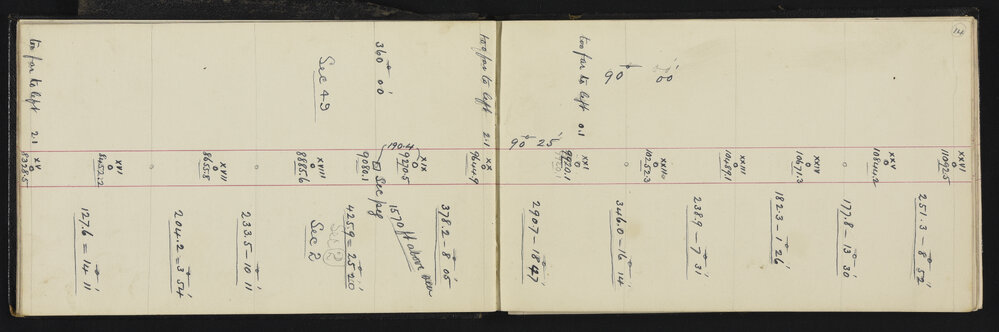 14
too far to left 2.1
360° 00'
Sec 49
too far to left 2.1
too far to left 0.1
90° 00'
90° 25'
XV 8328.5
XVI 8452.2
XVII 8655.8
XVIII 8885.6
9080.1 Sec peg
190.4
XIX 9270.5
XX 9644.9
XXI 9920.1
XXII 10252.3
XXIII 10489.1
XXIV 10671.3
XXV 10844.2
XXVI 11092.5
127.6 = 14° 11'
204.2 = 3° 54'
233.5 - 10° 11'
Sec 2
425.9 = 25° 20'
1570 ft above
378.2 - 8° 05'
290.7 - 18° 47'
346.0 - 16° 14'
238.9 - 7° 31'
182.3 - 1° 26'
177.8 - 13° 30'
251.3 - 8° 52'